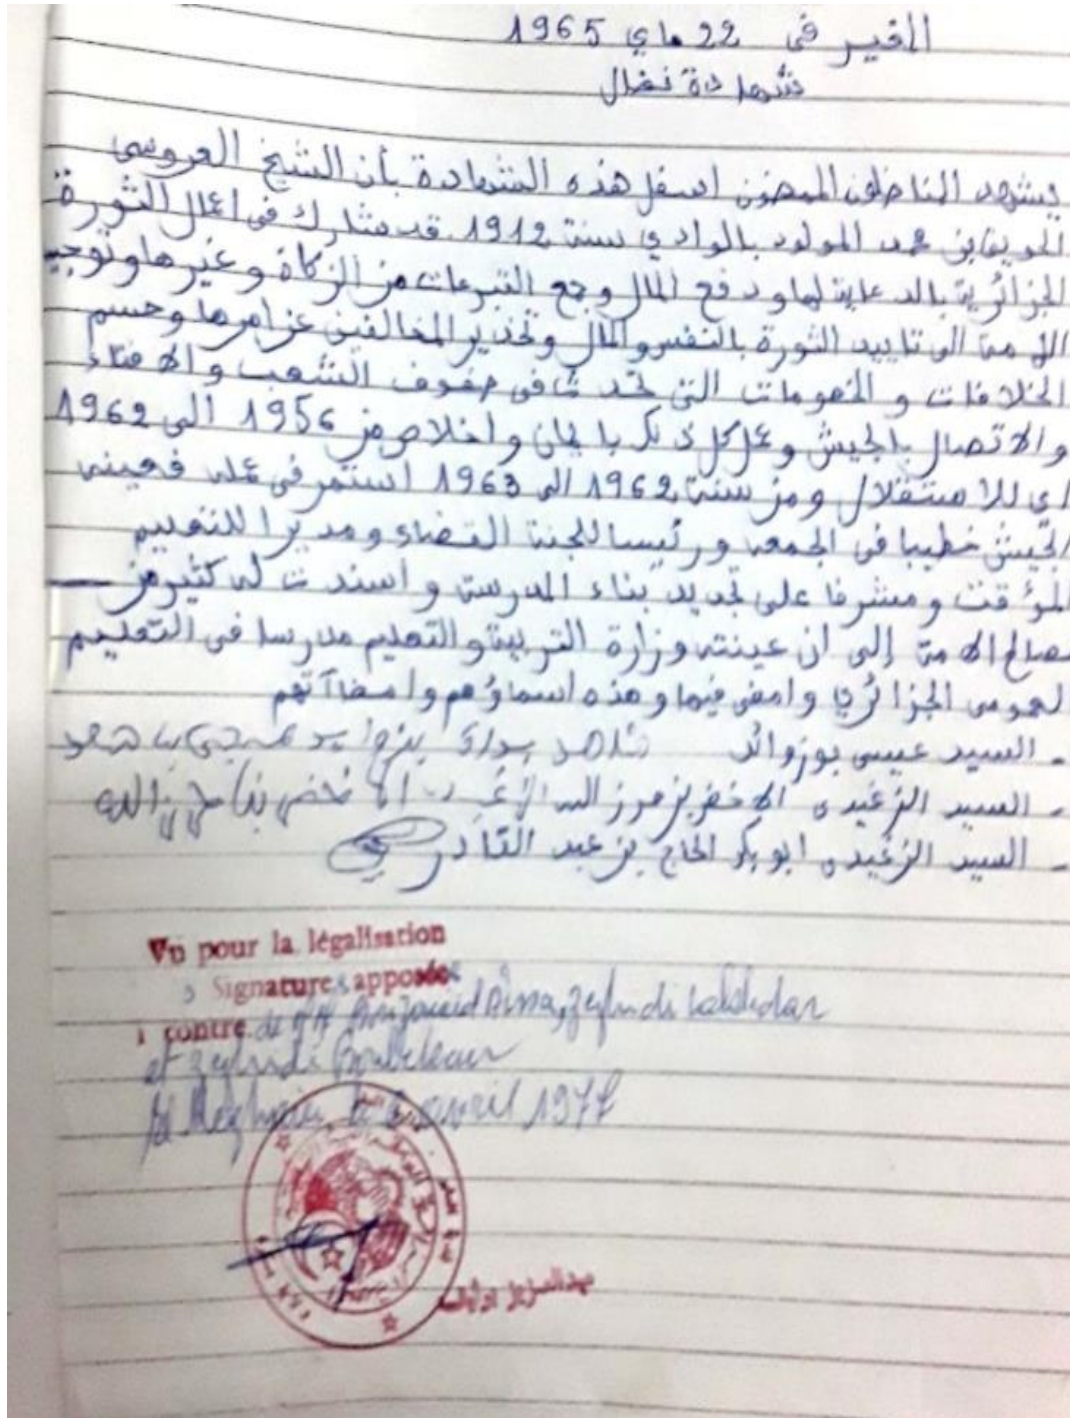 المغير في 22 ماي 1965
شهادة نضال
يشهد المناضلون الممضون اسفل هذه الشهادة بأن الشيخ العروسي
بن محمد المولود بالوادي سنة 1912 قد شارك في اعمال الثورة
الجزائرية بالدعاية لها ودفع المال وجمع التبرعات من الزكاة وغيرها وتوجيه
الامة الى تاييد الثورة بالنفس والمال وتحذير المخالفين عن امرها وحسم
الخلافات و الخصومات التي تحدث في صفوف الشعب والافتاء
والاتصال بالجيش وعمل كل ذلك بايمان واخلاص من 1956 الى 1962
اي للاستقلال ومن سنة 1962 الى 1963 استمر في عمله فعينه
الجيش خطيبا في الجمعة ورئيسا للجنة القضاء ومديرا للتعليم
المؤقت ومشرفا على تجديد بناء المدرسة واسندت له كثير من
مصالح الامة إلى ان عينته وزارة التربية والتعليم مدرسا في التعليم
العمومي الجزائري وامضى فيها وهذه اسماؤهم وامضاآتهم
- السيد عيسى بوزوائد شاهد
- السيد الزغيدي الاخضر بن مرزالله
- السيد الزغيدي ابو بكر الحاج بن عبد القادر
Vu pour la légalisation
Signatures apposées
contre de Aissa, Zeghidi Lakhdar
et Zeghidi Boubekeur
El Meghaier le 6 avril 1977